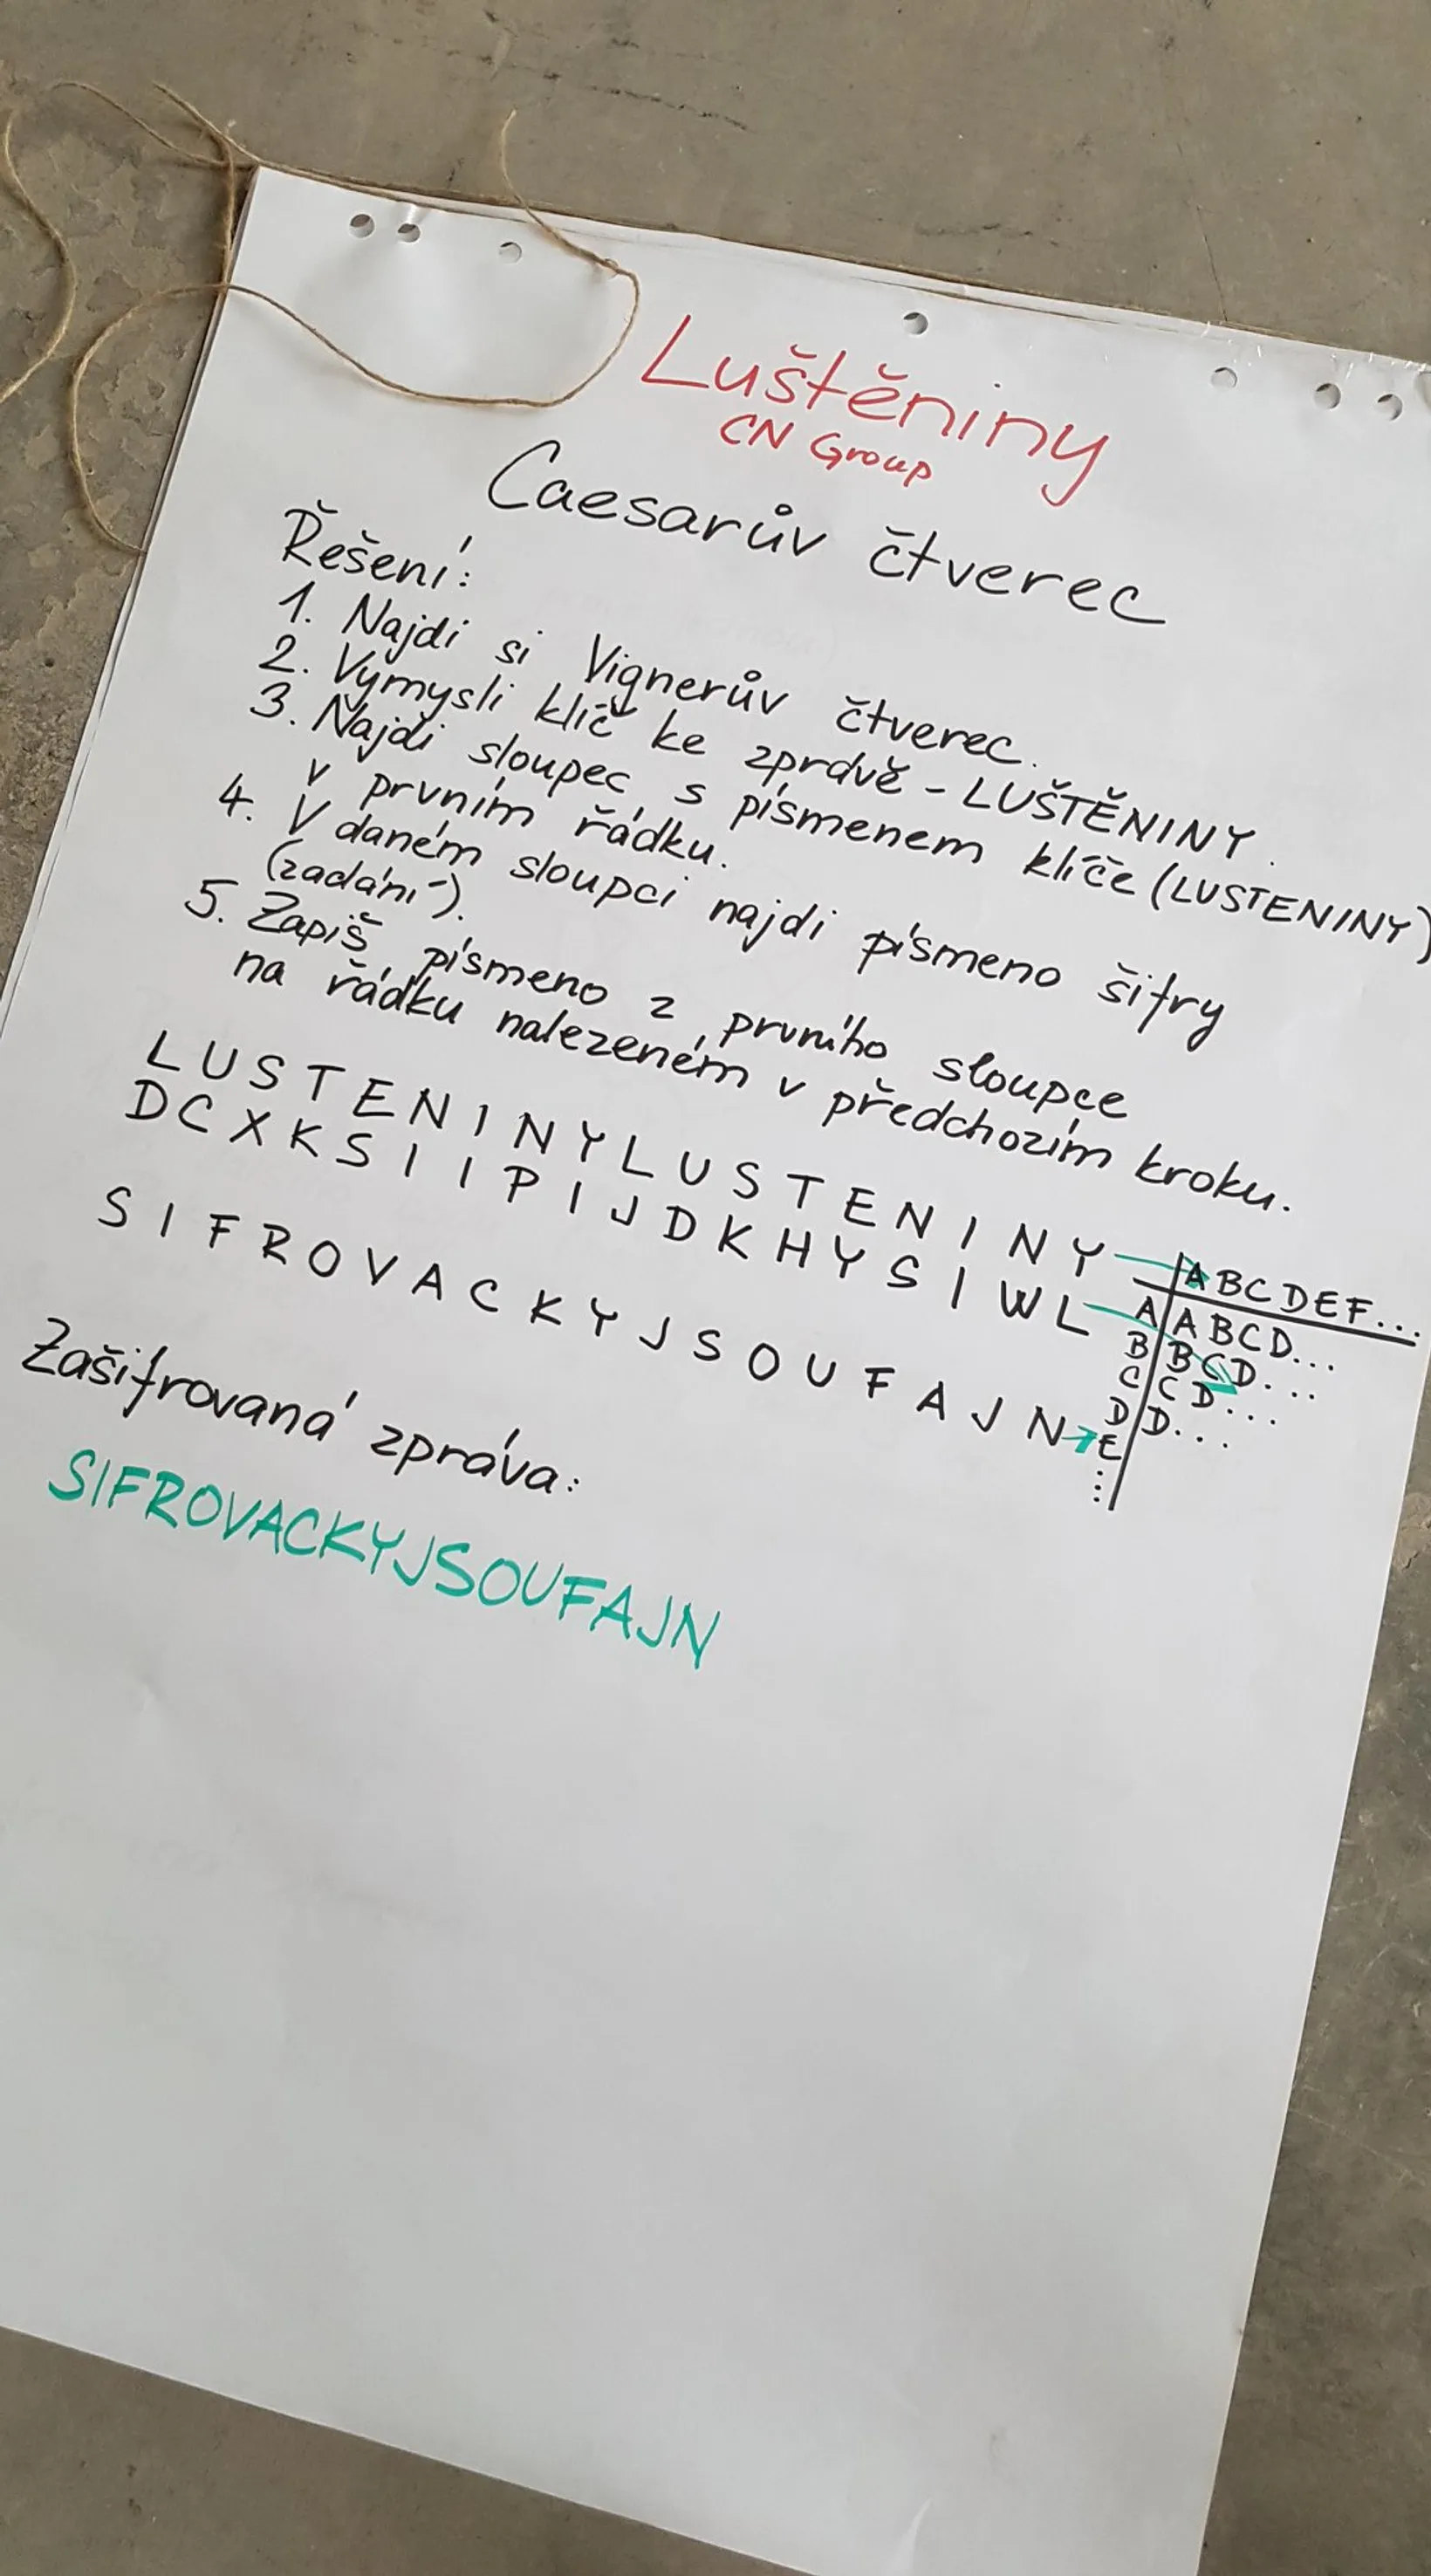 Luštěniny
CN Group
Caesarův čtverec
Řešení:
1. Najdi si Vignerův čtverec.
2. Vymysli klíč ke zprávě - LUŠTĚNINY.
3. Najdi sloupec s písmenem klíče (LUSTENINY)
v prvním řádku.
4. V daném sloupci najdi písmeno šifry
(zadání).
5. Zapiš písmeno z prvního sloupce
na řádku nalezeném v předchozím kroku.
L U S T E N I N Y L U S T E N I N Y
D C X K S I I P I J D K H Y S I W L
S I F R O V A C K Y J S O U F A J N
A B C D E F...
A A B C D...
B B C D...
C C D...
D D...
E
...
Zašifrovaná zpráva:
SIFROVACKYJSOUFAJN